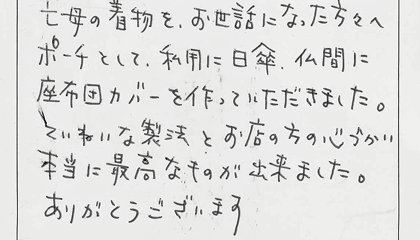 亡母の着物を、お世話になった方々へ
ポーチとして、私用に日傘、仏間に
座布団カバーを作っていただきました。
ていねいな製法とお店の方の心づかい
本当に最高なものが出来ました。
ありがとうございます